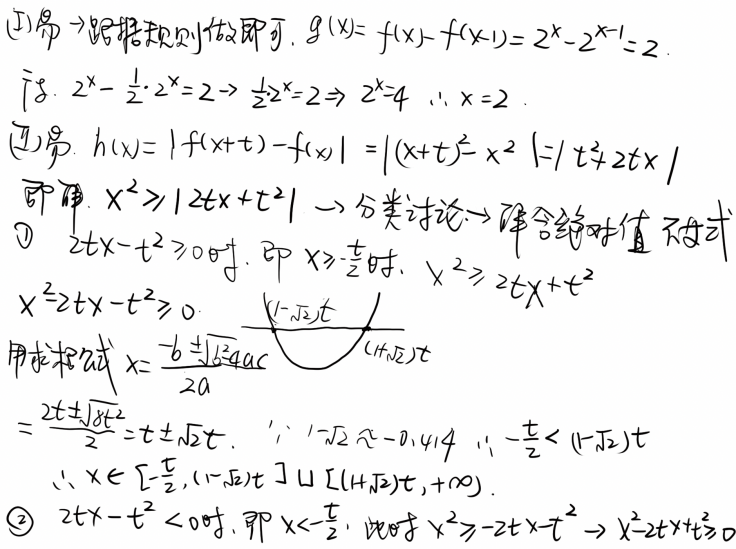 (I)易→跟据规则做即可. g(x)= f(x)-f(x-1)= 2^x-2^{x-1}=2.
得. 2^x-\frac{1}{2}·2^x=2→ \frac{1}{2}·2^x=2⇒ 2^x=4 ∴ x=2.
(II)易. h(x)= |f(x+t)-f(x)| =|(x+t)^2-x^2|=|t^2+2tx|
即解. x^2≥|2tx+t^2| →分类讨论→解含绝对值不等式
① 2tx-t^2≥0时. 即 x≥-\frac{t}{2}时. x^2≥2tx+t^2
x^2-2tx-t^2≥0.
(1-√2)t
(1+√2)t
用求根公式 x=\frac{-b±\sqrt{b^2-4ac}}{2a}
=\frac{2t±\sqrt{8t^2}}{2}=t±√2t. ∵ 1-√2≈-0.414 ∴ -\frac{t}{2}<(1-√2)t
∴ x∈[-\frac{t}{2},(1-√2)t]∪[(1+√2)t,+∞).
② 2tx-t^2<0时.即 x<-\frac{t}{2}. 此时 x^2≥-2tx-t^2→x^2-2tx+t^2≥0